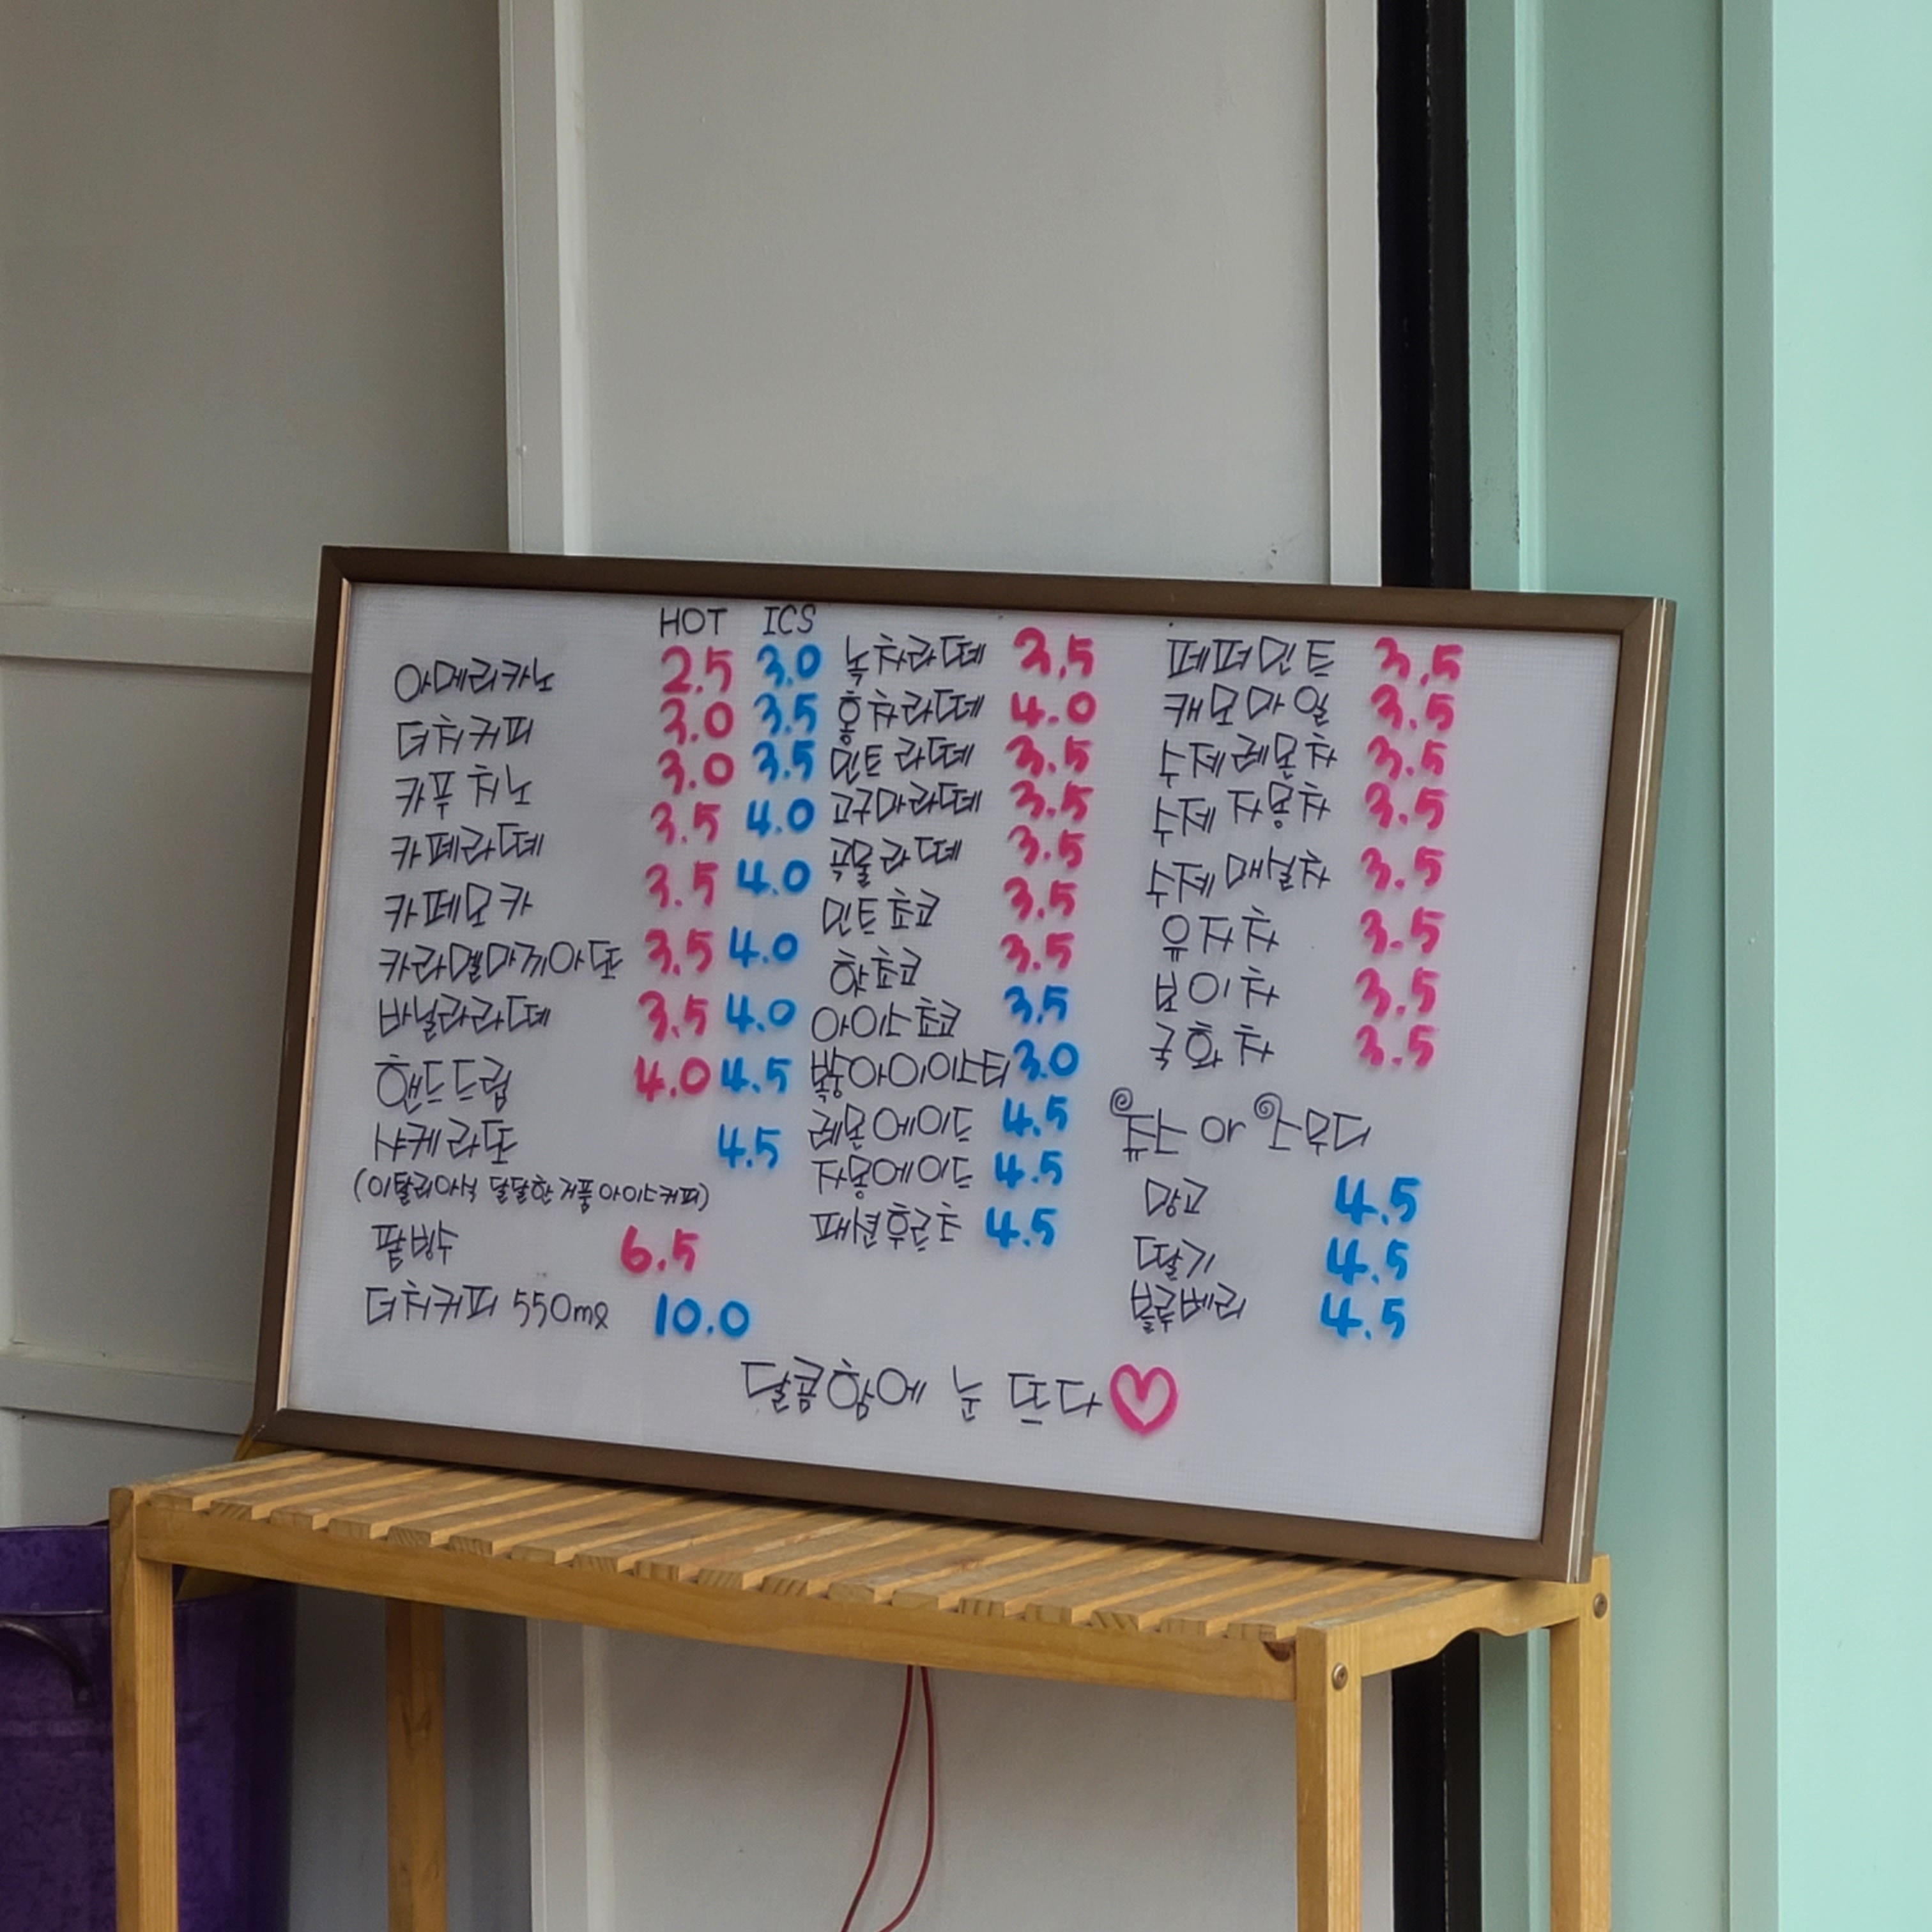 HOT ICS
아메리카노 2.5 3.0
더치커피 3.0 3.5
카푸치노 3.0 3.5
카페라떼 3.5 4.0
카페모카 3.5 4.0
카라멜마끼아또 3.5 4.0
바닐라라떼 3.5 4.0
핸드드립 4.0 4.5
샤케라또 4.5
(이탈리아식 달달한 거품 아이스커피)
팥빙수 6.5
더치커피 550ml 10.0
녹차라떼 3.5
홍차라떼 4.0
민트라떼 3.5
고구마라떼 3.5
곡물라떼 3.5
민트쵸코 3.5
핫쵸코 3.5
아이스쵸코 3.5
복숭아아이스티 3.0
레몬에이드 4.5
자몽에이드 4.5
패션후르츠 4.5
페퍼민트 3.5
캐모마일 3.5
수제레몬차 3.5
수제 자몽차 3.5
수제 매실차 3.5
유자차 3.5
보이차 3.5
국화차 3.5
쥬스 or 스무디
망고 4.5
딸기 4.5
블루베리 4.5
달콤함에 눈 뜨다♡